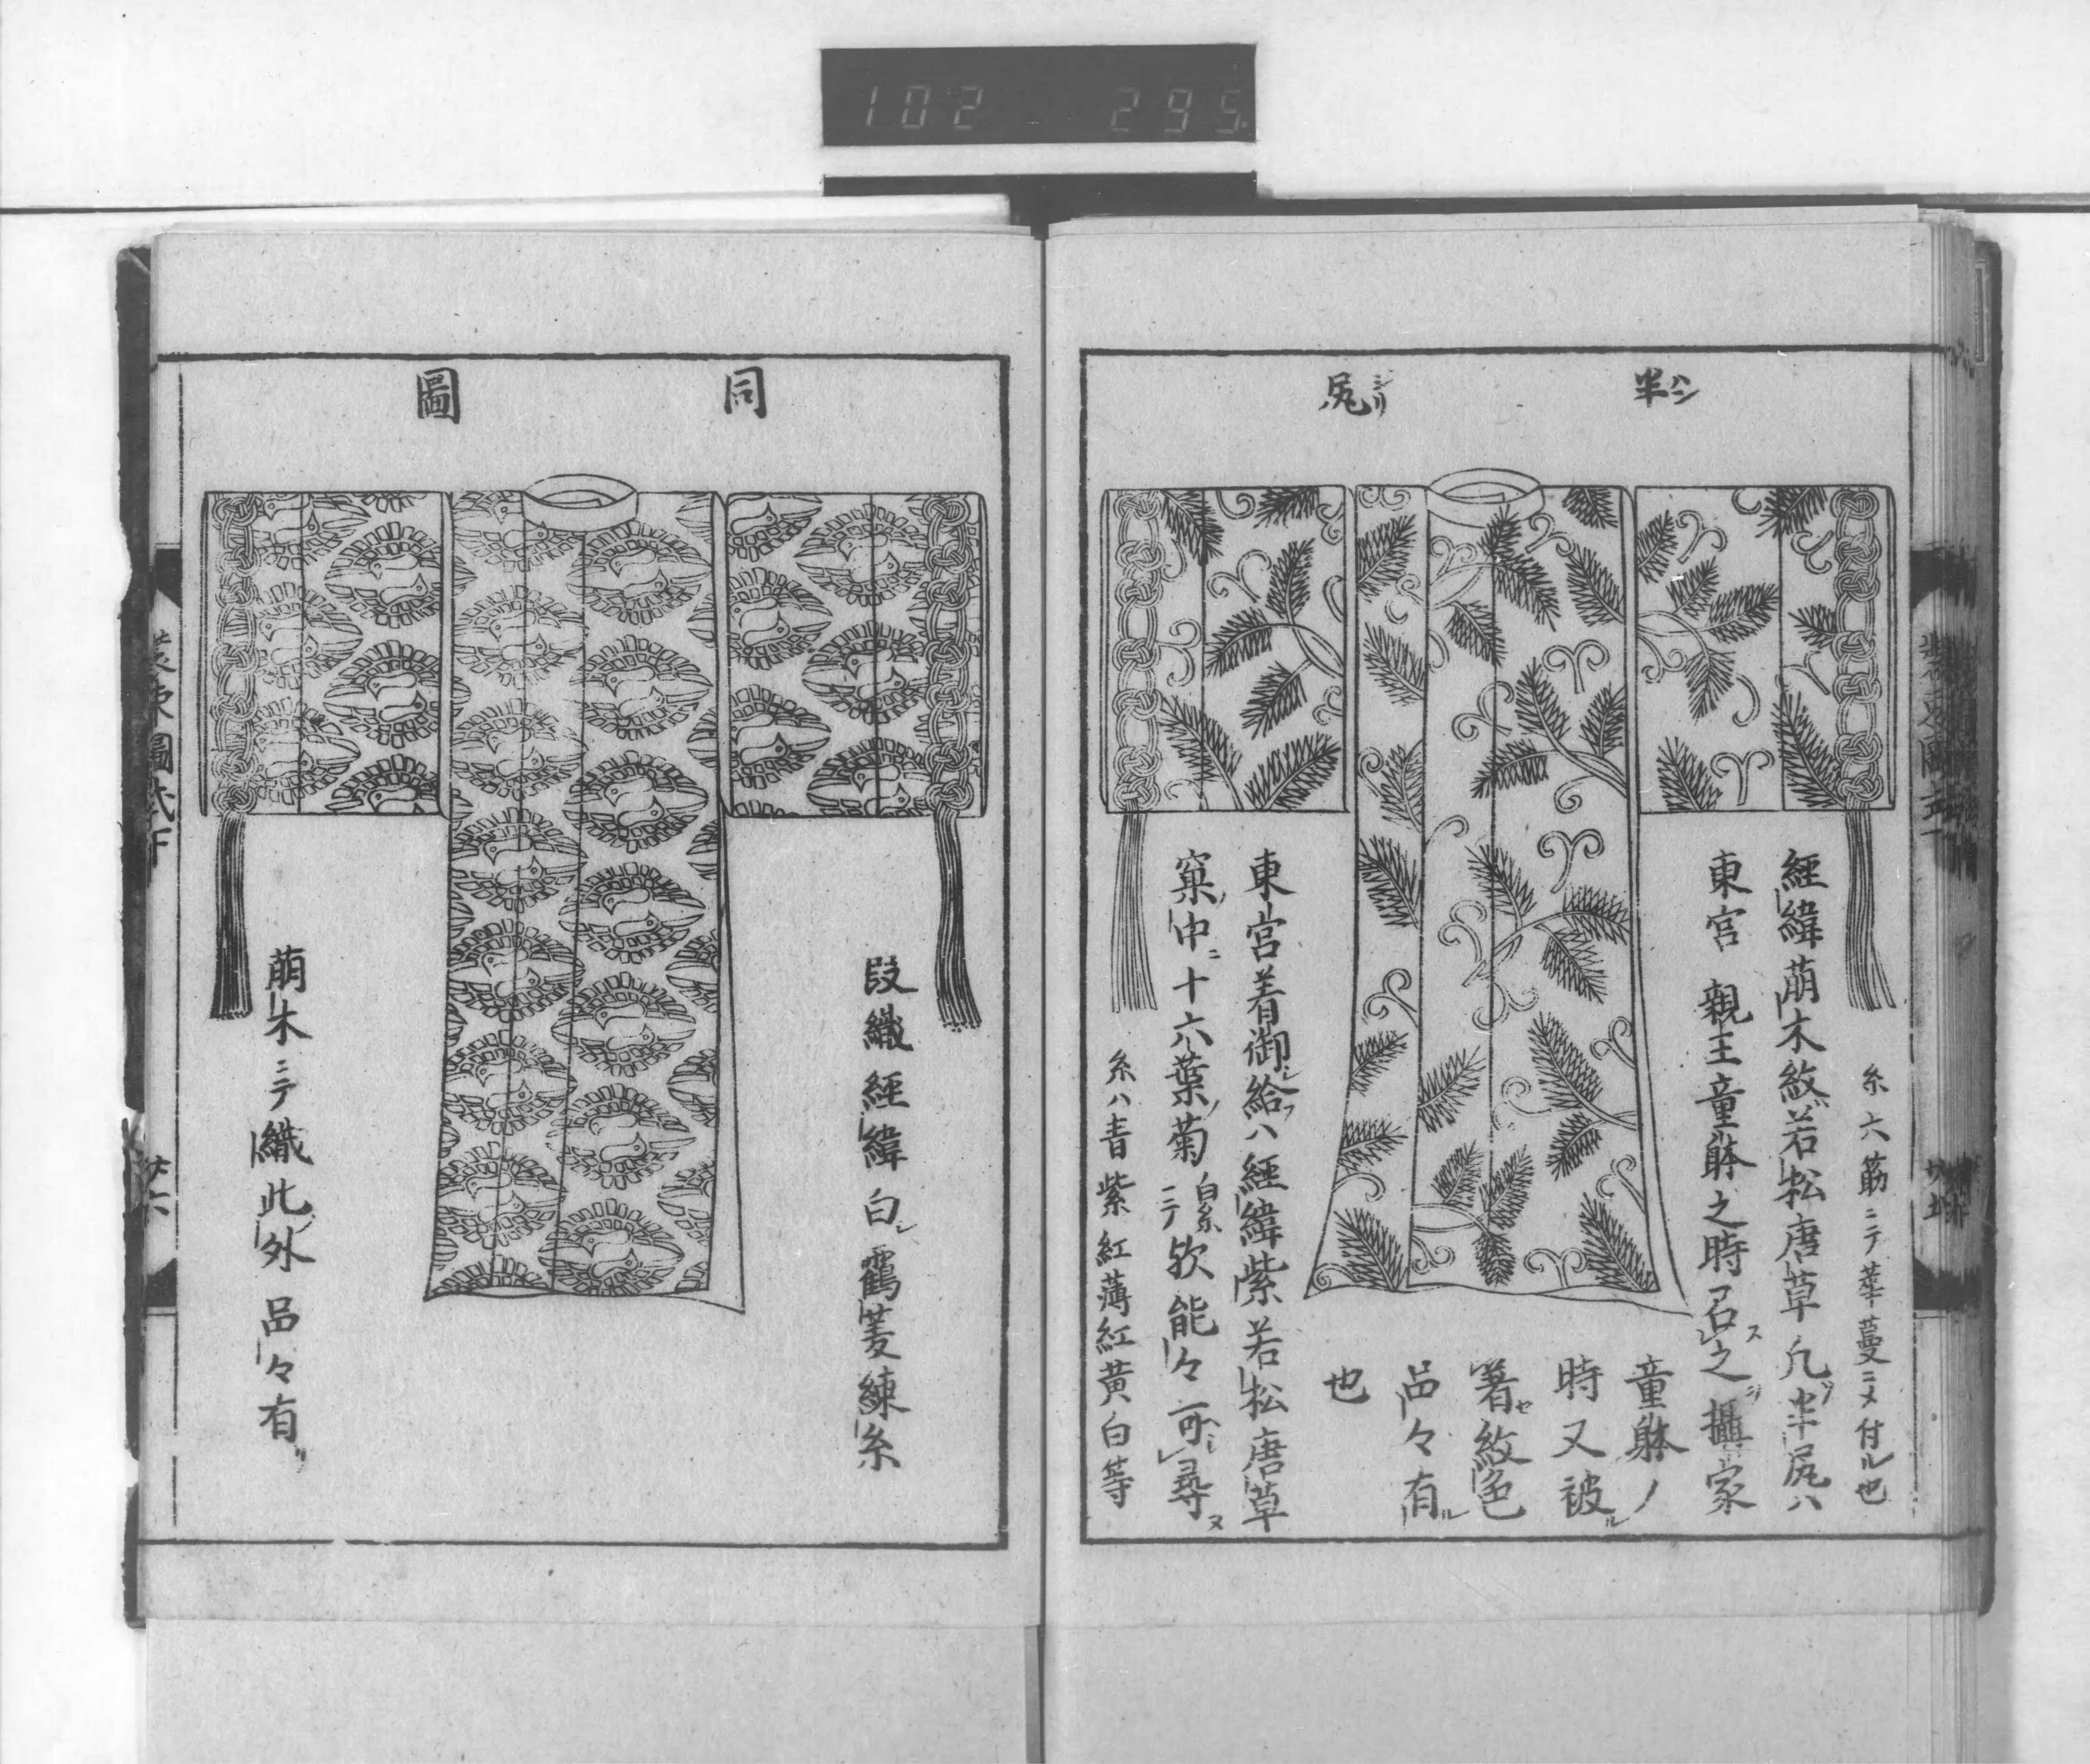 102 295
半ハン 尻シリ
糸六筋ニテ華蔓ニメ付ル也
経緯萠木紋若松唐草凢半尻ハ
東宮 親王童躰之時召ス之攝家
童躰ノ
時又被ル
着セ紋色
品々有ル
也
東宮着御シ給フハ経緯紫若松唐草
窠中ニ十六葉ノ菊白糸ニテ欤能々可シ尋ヌ
糸ハ青紫紅薄紅黄白等
同 圖
段織 経緯白シ 霍菱練糸
萠木ニテ織此外品々有リ
裝束圖式下
廿六